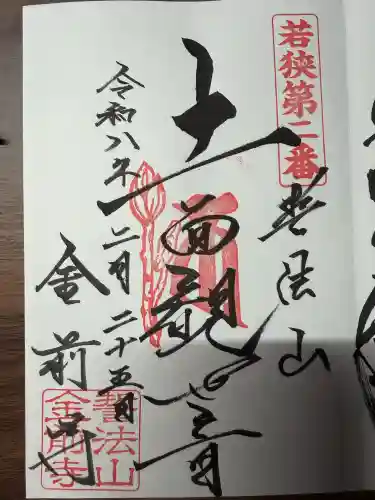 若狭第二番
誓法山
十一面觀世音
令和八年二月二十五日
金前寺
誓法山
金前寺